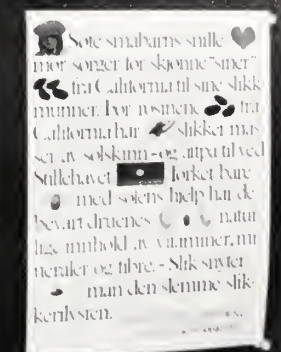 Søte småbarns snille
mor sørger for skjønne "snier"
fra California til sine slikk
munner. For rosinene fra
California har slikket mas
ser av solskinn - og attpå til ved
Stillehavet tørket bare
med solens hjelp har de
bevart druenes natur
lige innhold av vitaminer, mi
neraler og fibre. - Slik snyter
man den slemme slik
kerilysten.